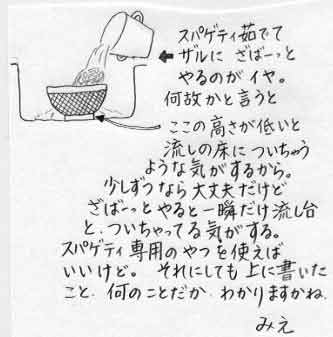 スパゲティ茹でて
ザルに ざばーっと
やるのがイヤ。
何故かと言うと
ここの高さが低いと
流しの床についちゃう
ような気がするから。
少しずつなら大丈夫だけど
ざばーっとやると一瞬だけ流し台
と、ついちゃってる気がする。
スパゲティ専用のやつを使えば
いいけど。 それにしても上に書いた
こと、何のことだか、わかりますかね。
みえ